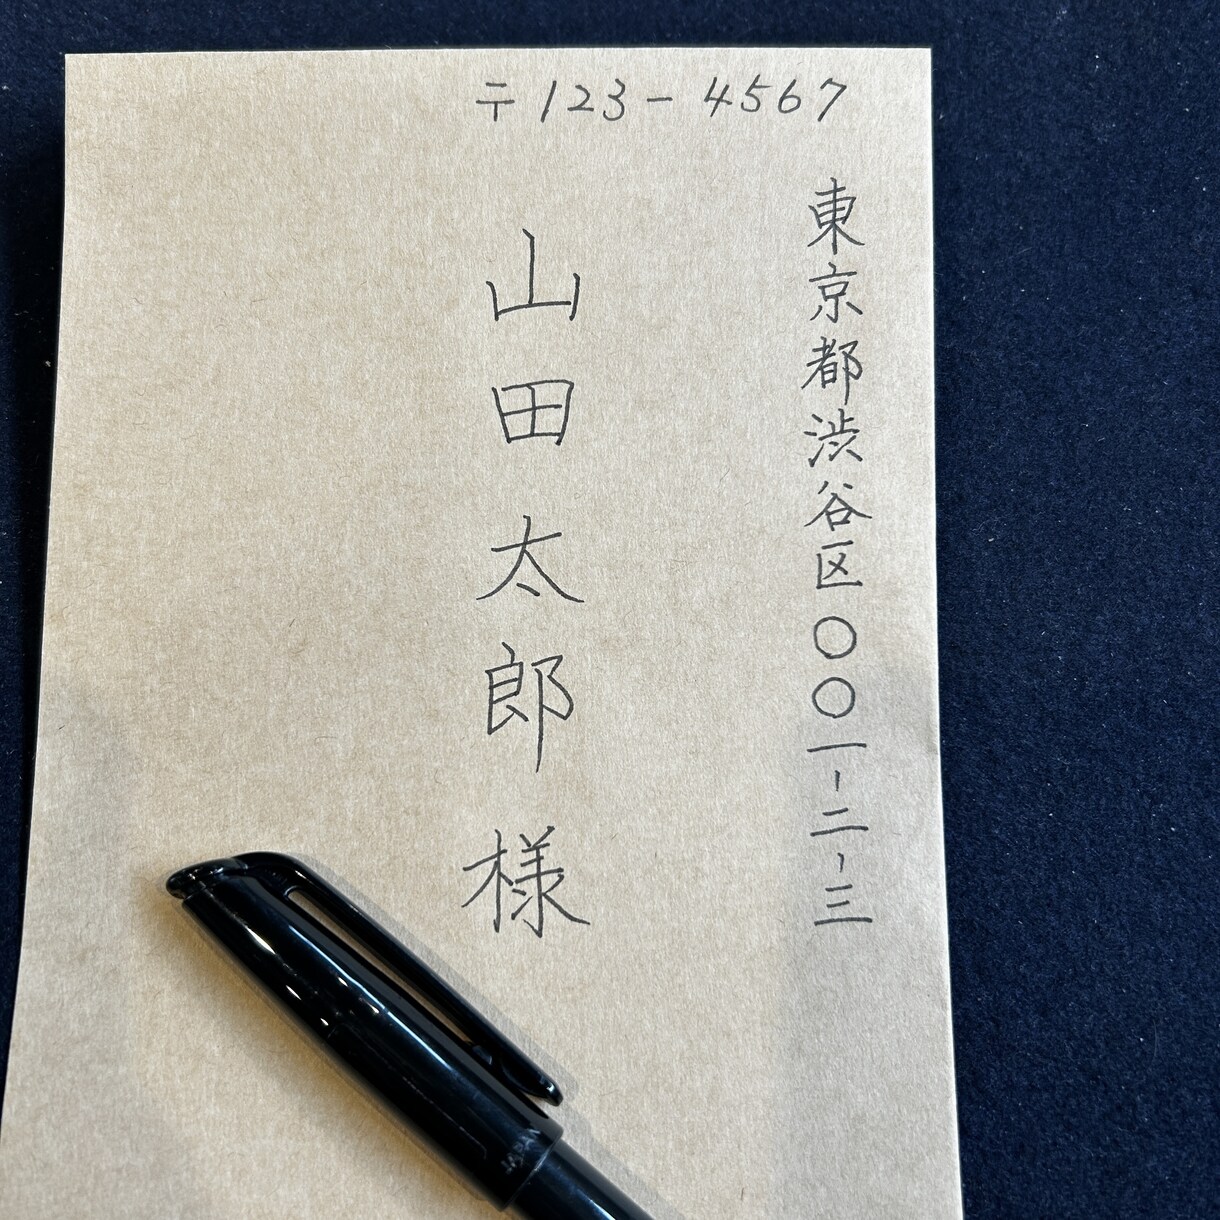 〒123-4567
東京都渋谷区〇〇一-二-三
山田太郎様